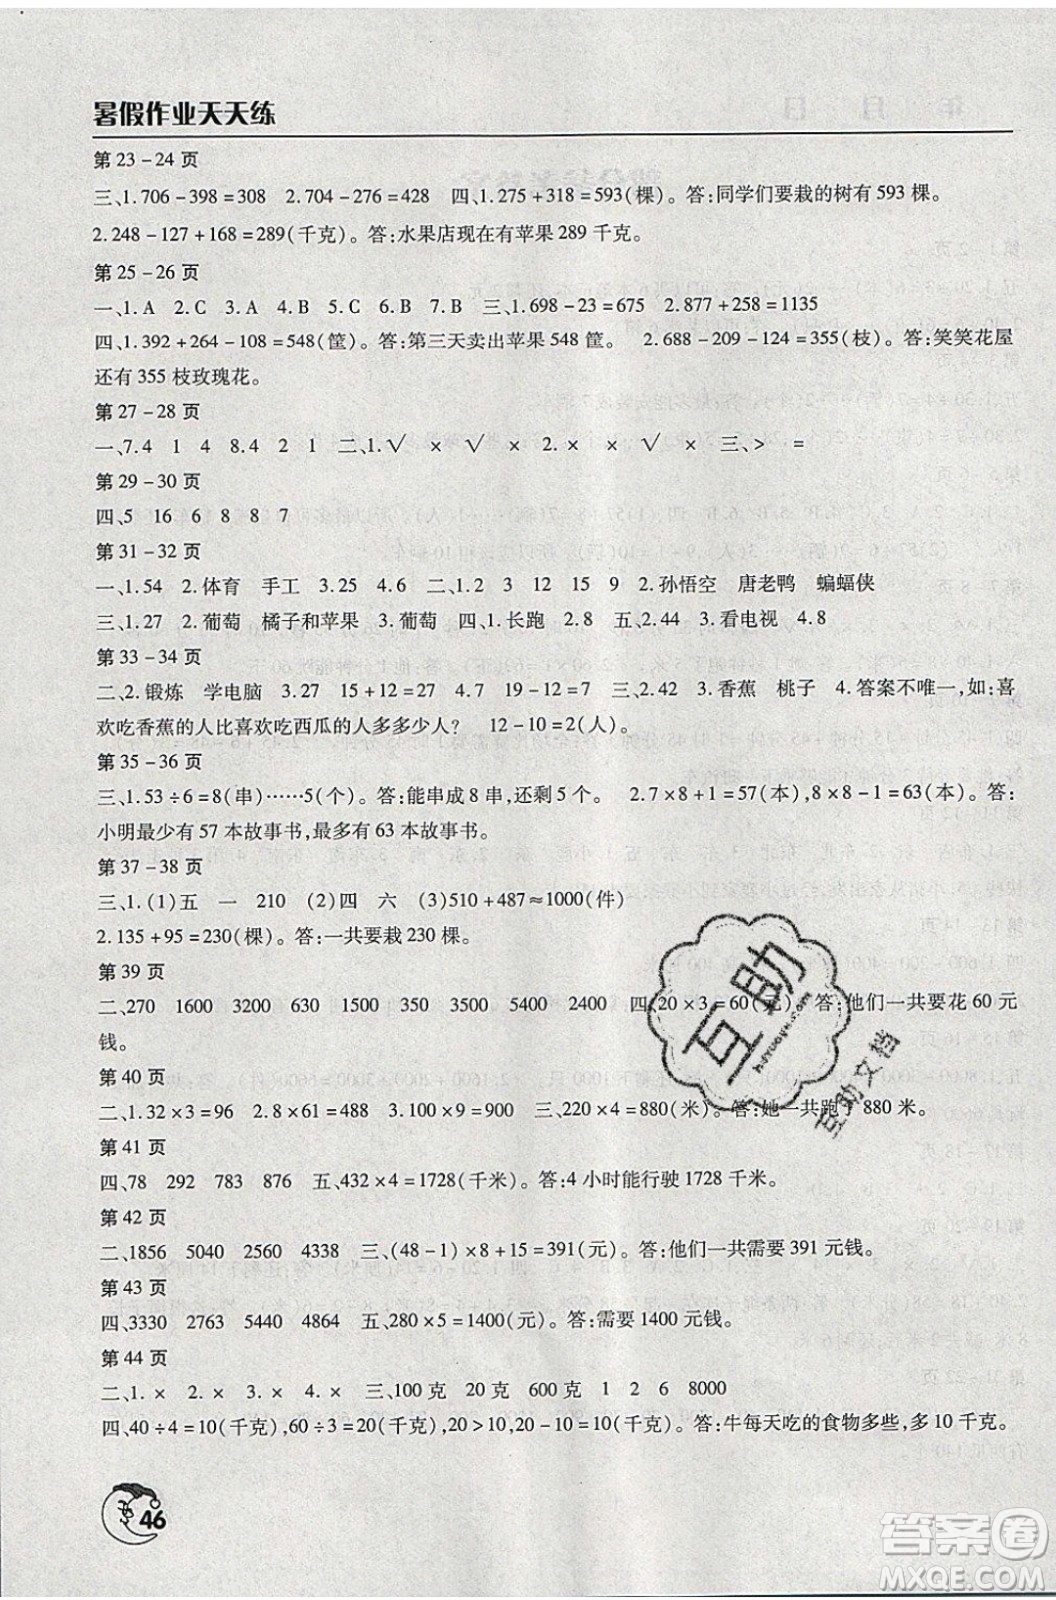 暑假作业天天练
第 23－24 页
三、1.706－398＝308　2.704－276＝428　四、1.275＋318＝593(棵)。答:同学们要栽的树有 593 棵。
2.248－127＋168＝289(千克)。答:水果店现在有苹果 289 千克。
第 25－26 页
一、1.A　2.C　3.A　4.B　5.C　6.A　7.B　8.B　三、1.698－23＝675　2.877＋258＝1135
四、1.392＋264－108＝548(筐)。答:第三天卖出苹果 548 筐。　2.688－209－124＝355(枝)。答:笑笑花屋
还有 355 枝玫瑰花。
第 27－28 页
一、7.4　1　4　8.4　2　1　二、1.√　×　√　×　2.×　×　√　×　三、＞　＝
第 29－30 页
四、5　16　6　8　8　7
第 31－32 页
一、1.54　2.体育　手工　3.25　4.6　二、1.2　3　12　15　9　2.孙悟空　唐老鸭　蝙蝠侠
三、1.27　2.葡萄　橘子和苹果　3.葡萄　四、1.长跑　2.8　五、2.44　3.看电视　4.8
第 33－34 页
二、2.锻炼　学电脑　3.27　15＋12＝27　4.7　19－12＝7　三、2.42　3.香蕉　桃子　4.答案不唯一,如:喜
欢吃香蕉的人比喜欢吃西瓜的人多多少人?　12－10＝2(人)。
第 35－36 页
三、1.53÷6＝8(串)……5(个)。答:能串成 8 串,还剩 5 个。　2.7×8＋1＝57(本),8×8－1＝63(本)。答:
小明最少有 57 本故事书,最多有 63 本故事书。
第 37－38 页
三、1.(1)五　一　210　(2)四　六　(3)510＋487≈1000(件)
2.135＋95＝230(棵)。答:一共要栽 230 棵。
第 39 页
二、270　1600　3200　630　1500　350　3500　5400　2400　四、20×3＝60(元)。答:他们一共要花 60 元
钱。
第 40 页
二、1.32×3＝96　2.8×61＝488　3.100×9＝900　三、220×4＝880(米)。答:她一共跑了 880 米。
第 41 页
四、78　292　783　876　五、432×4＝1728(千米)。答:4 小时能行驶 1728 千米。
第 42 页
二、1856　5040　2560　4338　三、(48－1)×8＋15＝391(元)。答:他们一共需要 391 元钱。
第 43 页
四、3330　2763　5440　4864　五、280×5＝1400(元)。答:需要 1400 元钱。
第 44 页
二、1.×　2.×　3.×　4.×　三、100 克　20 克　600 克　1　2　6　8000
四、40÷4＝10(千克),60÷3＝20(千克),20＞10,20－10＝10(千克)。答:牛每天吃的食物多些,多 10 千克。
46
互助
互助文档
答案圈
MXQE.COM